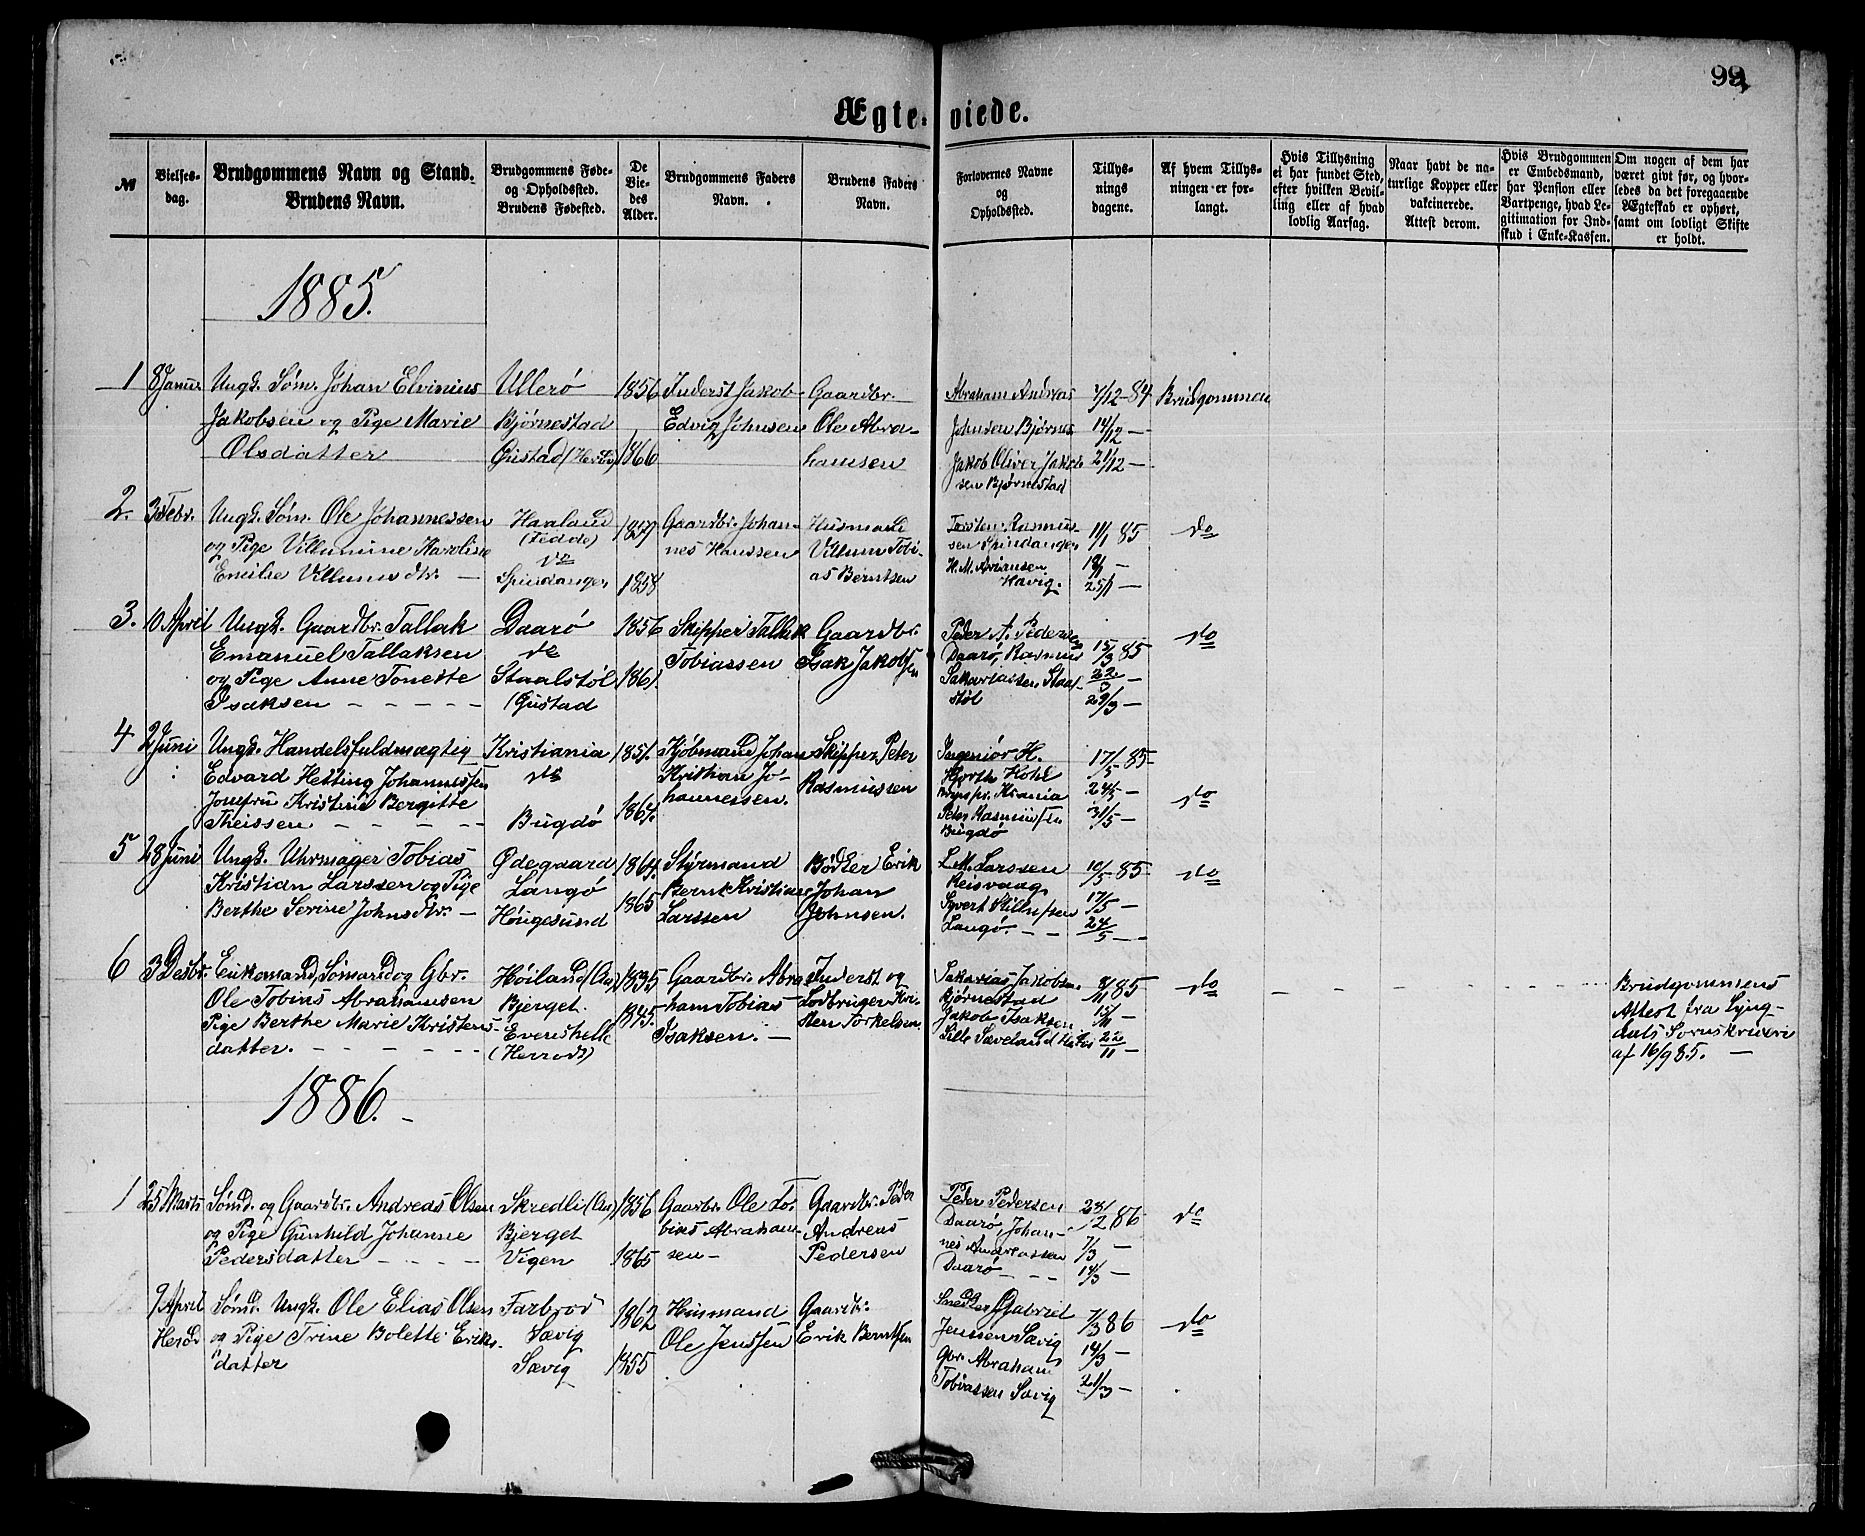 99
Ægte-viede.
№
Vielses-
dag.
Brudgommens Navn og Stand.
Brudens Navn.
Brudgommens Føde-
og Opholdsted.
Brudens Fødested.
De
Vie-
des
Alder.
Brudgommens Faders
Navn.
Brudens Faders
Navn.
Forlovernes Navne
og
Opholdsted.
Tillys-
nings
dagene.
Af hvem Tillys-
ningen er for-
langt.
Hvis Tillysning
ei har fundet Sted,
efter hvilken Bevil-
ling eller af hvad
lovlig Aarsag.
Naar havt de na-
turlige Kopper eller
vakcinerede.
Attest derom.
Hvis Brudgommen
er Embedsmand,
har Pension eller
Vartpenge, hvad Le-
gitimation for Ind-
skud i Enke-Kassen.
Om nogen af dem har
været givt før, og hvor-
ledes da det foregaaende
Ægteskab er ophørt,
samt om lovligt Skifte
er holdt.
1885.
1
8 Janu.
Ungk. Søm. Johan Elvinius
Jakobsen og Pige Marie
Olsdatter
Ullerø
Bjørnestad
Gustad (Herred)
1856
1860
Inderst Jakob
Edvig Johnsen
Gaardbr.
Ole Abra-
hamsen
Abraham Andreas
Johnsen Bjørnes
Jakob Oliver Jakob
sen Bjørnestad
7/12-84
14/12 —
21/12 —
Brudgommen
2.
3 Febr.
Ungk. Søm. Ole Johannessen
og Pige Villumine Karoline
Emilie Villumsdtr. —
Haaland
(Fedde)
do
Spindanger
1857
1858
Gaardbr. Johan-
nes Hanssen
Husmand
Villum Tobi-
as Berntsen
Torsten Rasmus-
sen Spindanger
H. M. Arianssen
Havig.
11/1 85
18/1 —
25/1 —
do
3.
10 April
Ungk. Gaardbr. Tallak
Emanuel Tallaksen
og Pige Anne Tonette
Isaksen — — — — —
Daarø
do
Staalstøl
(Gustad
1856
1861.
Skipper Tallak
Tobiassen
Gaardbr.
Isak Jakobsen
Peder A. Pedersen
Daarø, Rasmus
Sakariassen Staal-
støl
15/3 85
22/3 —
29/3 —
do
4
2 Juni
Ungk. Handelsfuldmægtig
Edvard Hetting Johannessen
Jomfru Kristine Bergitte
Theissen — — — —
Kristiania
do
Bugdø
1851.
1864.
Kjøbmand Johan
Kristian Jo-
hannessen.
Skipper Peter
Rasmussen
Ingeniør H.
Hjorth Kohl
Kr.ania
Peter Rasmussen
Bugdø
17/5 85
24/5 —
31/5 —
do
5
28 Juni
Ungk. Uhrmager Tobias
Kristian Larssen og Pige
Berthe Serine Johnsdtr. —
Ødegaard
Langø
Høugesund
1864.
1865
Styrmand
Bernt Kristian
Larssen
Bødker Erik
Johan
Johnsen.
L. M. Larssen
Reisvaag
Syvert Stillufsen
Langø. — —
10/5 85
17/5 —
24/5 —
do
6
3 Desbr.
Enkemand, Sømand og Gbr.
Ole Tobias Abrahamsen
Pige Berthe Marie Kristens-
datter. — — — — — —
Høiland (Aa)
Bjerget
Eveneshelle
(Herrods)
1835
1845.
Gaardbr. Abra-
ham Tobias
Isaksen. —
Inderst og
Lodbruger Kri-
sten Torkelsen
Sakarias Jakobsen
Bjørnestad
Jakob Isaksen
Lille Sæveland
8/11 85
15/11 —
22/11 —
do
Brudgommens
Attest fra Lyng-
dals Sorenskriveri
af 16/9 85. —
1886.
1
25 Marts
Sømd. og Gaardbr. Andreas Olsen
og Pige Gunhild Johanne
Pedersdatter — — — —
Skredli (Aa)
Bjerget
Vigen
1856
1865
Gaardbr. Ole To-
bias Abraham-
sen —
Gaardbr. Peder
Andreas
Pedersen
Peder Pedersen
Daarø, Johan-
nes Andreassen
Daarø — — —
28/2 86
7/3 —
14/3 —
do
9 April
Herad
Sømd. Ungk. Ole Elias Olsen
og Pige Trine Bolette Eriks-
datter
Farbrod
Sævig
Sævig
1862
1855
Husmand
Ole Jenssen
Gaardbr.
Erik Berntsen
Snedker Gabriel
Jenssen Sævig
Gbr. Abraham
Tobiassen Sævig
7/3 86
14/3 —
21/3 —
do